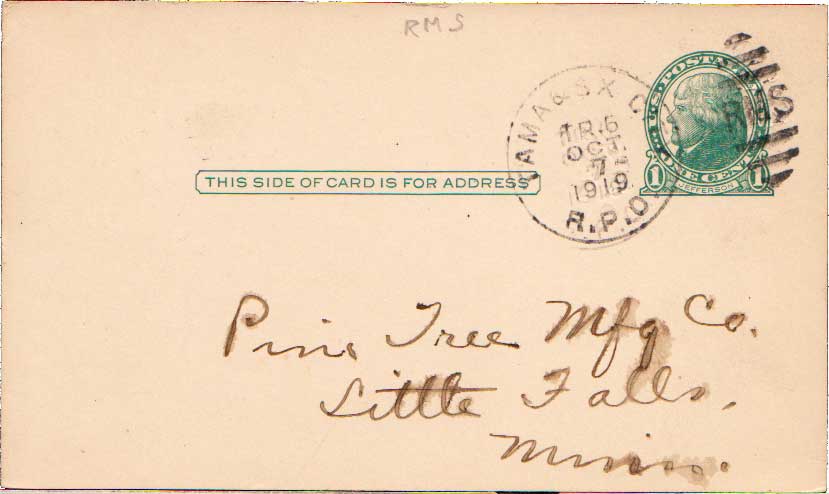 RMS
TAMA & SX C
TR. 6
OCT
7
1919
R.P.O.
U.S. POSTAL CARD
ONE CENT
1 JEFFERSON 1
THIS SIDE OF CARD IS FOR ADDRESS
Pine Tree Mfg Co.
Little Falls,
Minn.